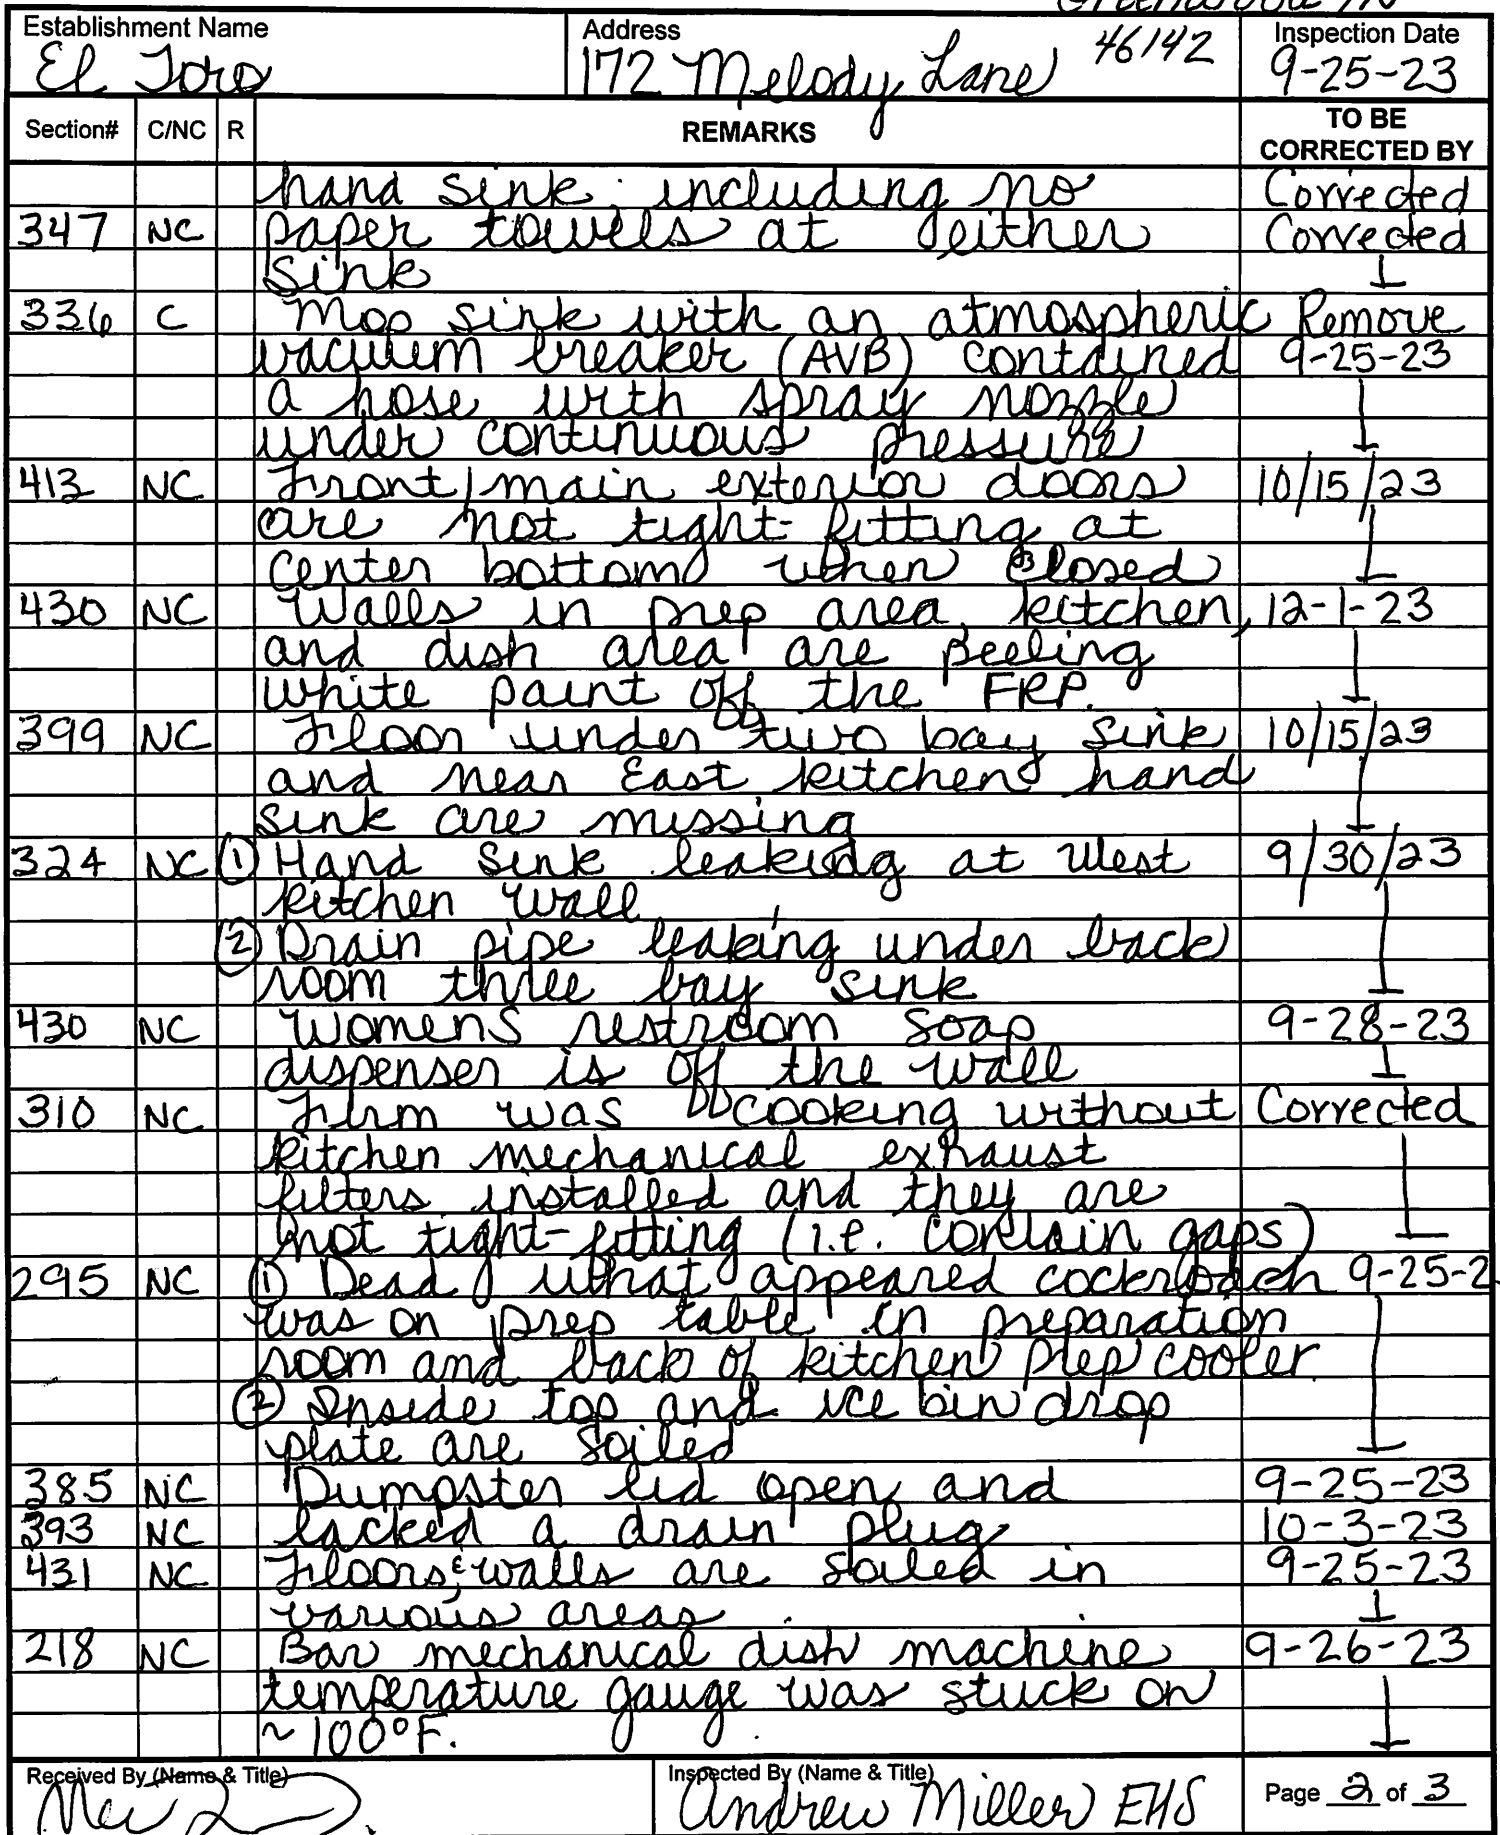 Greenwood IN
Establishment Name Address Inspection Date
El Toro 172 Melody Lane 46142 9-25-23
Section# C/NC R REMARKS TO BE CORRECTED BY
hand sink including no Corrected
347 NC paper towels at either Corrected
sink
336 C Mop sink with an atmospheric Remove
vacuum breaker (AVB) contained 9-25-23
a hose with spray nozzle
under continuous pressure
413 NC Front/main exterior doors 10/15/23
are not tight-fitting at
center bottom when closed
430 NC Walls in prep area, kitchen, 12-1-23
and dish area are peeling
white paint off the FRP.
399 NC Floor under two bay sink 10/15/23
and near East kitchen hand
sink are missing
324 NC ① Hand sink leaking at West 9/30/23
kitchen wall
② Drain pipe leaking under back
room three bay sink
430 NC Womens restroom soap 9-28-23
dispenser is off the wall
310 NC Firm was cooking without Corrected
kitchen mechanical exhaust
filters installed and they are
not tight-fitting (i.e. contain gaps)
295 NC ① Dead what appeared cockroach 9-25-2
was on prep table in preparation
room and back of kitchen prep cooler
② Inside top and ice bin drop
plate are soiled
385 NC Dumpster lid open and 9-25-23
393 NC lacked a drain plug 10-3-23
431 NC Floors & walls are soiled in 9-25-23
various areas
218 NC Bar mechanical dish machine 9-26-23
temperature gauge was stuck on
~100°F.
Received By (Name & Title) Inspected By (Name & Title) Page 2 of 3
Andrew Miller EHS